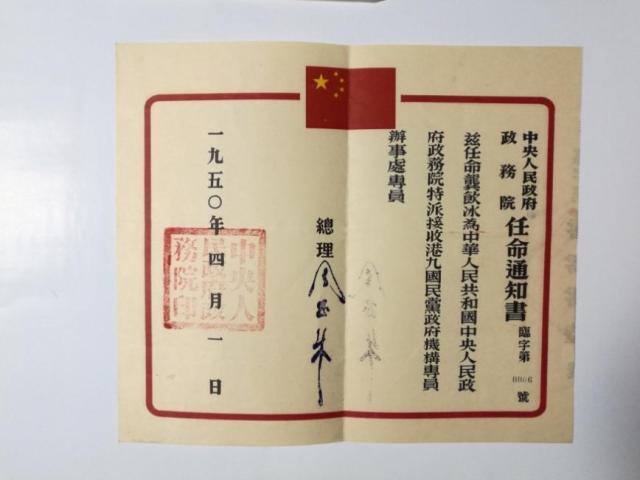 中央人民政府
政務院
任命通知書
臨字第
0806
號
茲任命龔飲冰為中華人民共和國中央人民政
府政務院特派接收港九國民黨政府機構專員
辦事處專員
總理
周恩来
一九五〇年四月一日
中央人
民政府政
務院印